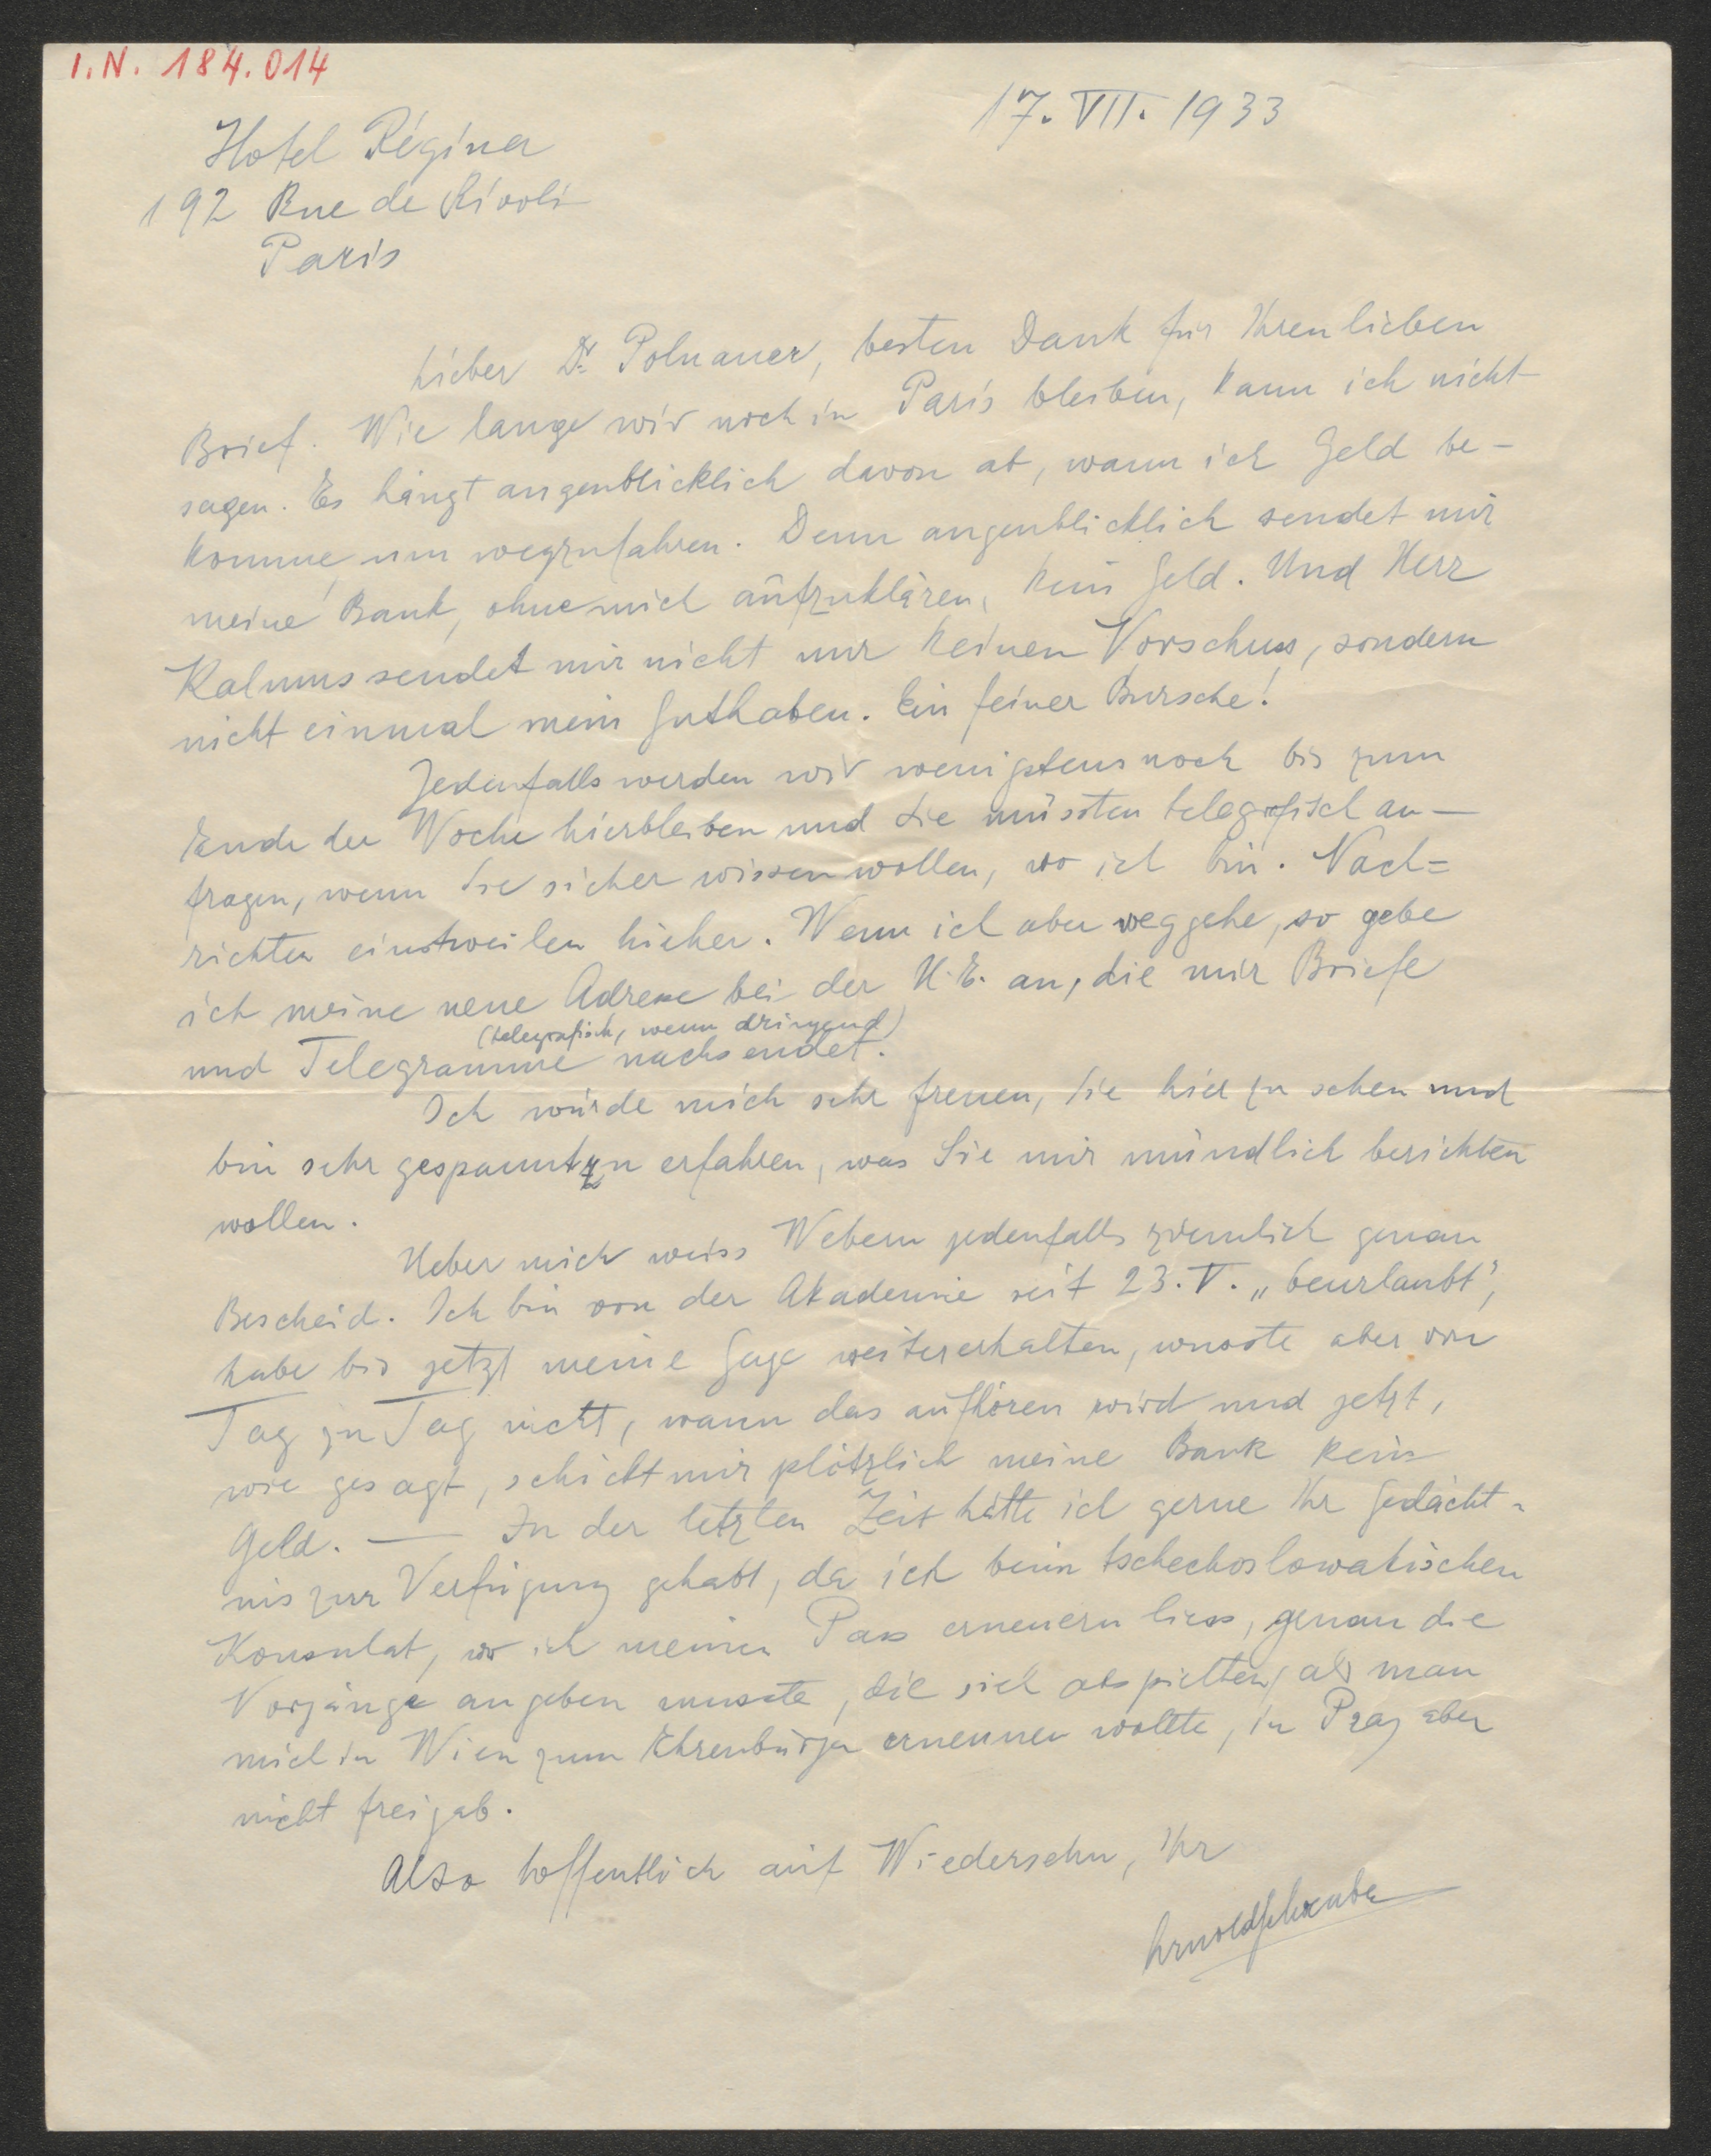 I.N. 184.014
17. VII. 1933
Hotel Régina
192 Rue de Rivoli
Paris
Lieber Dr Polnauer, besten Dank für Ihren lieben
Brief. Wie lange wir noch in Paris bleiben, kann ich nicht
sagen. Es hängt augenblicklich davon ab, wann ich Geld be-
komme, um wegzufahren. Denn augenblicklich sendet mir
meine Bank, ohne mich aufzuklären, kein Geld. Und Herr
Kalmus sendet mir nicht nur keinen Vorschuss, sondern
nicht einmal mein Guthaben. Ein feiner Bursche!
Jedenfalls werden wir wenigstens noch bis zum
Ende der Woche hierbleiben und Sie müssten telegrafisch an-
fragen, wenn Sie sicher wissen wollen, wo ich bin. Nach=
richten einstweilen hieher. Wenn ich aber weggehe, so gebe
ich meine neue Adresse bei der U.E. an, die mir Briefe
(telegrafisch, wenn dringend)
und Telegramme nachsendet.
Ich würde mich sehr freuen, Sie hier zu sehen und
bin sehr gespannt zu erfahren, was Sie mir mündlich berichten
wollen.
Ueber mich weiss Webern jedenfalls ziemlich genau
Bescheid. Ich bin von der Akademie seit 23. V. „beurlaubt",
habe bis jetzt meine Gage weitererhalten, wusste aber von
Tag zu Tag nicht, wann das aufhören wird und jetzt,
wie gesagt, schickt mir plötzlich meine Bank kein
Geld. — In der letzten Zeit hätte ich gerne Ihr Gedächt-
nis zur Verfügung gehabt, da ich beim tschechoslowakischen
Konsulat, wo ich meinen Pass erneuern liess, genau die
Vorgänge angeben musste, die sich abspielten, als man
mich in Wien zum Ehrenbürger ernennen wollte, in Prag aber
nicht freigab.
Also hoffentlich auf Wiedersehn, Ihr
Arnold Schönberg